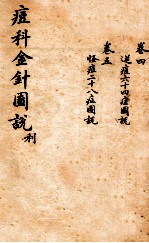 卷四
逆痘六十四症圖説
卷五
怪痘二十八症圖説
痘科金針圖説 利